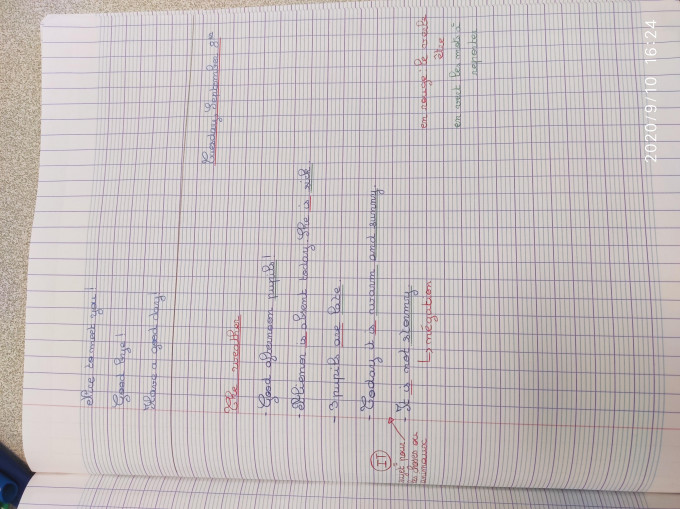 Nice to meet you!
Good bye!
Have a good day!
Tuesday, September 8th
The weather
- Good afternoon pupils!
- is absent today. She is sick
- 3 pupils are late
- Today it is warm and sunny
- It is not stormy
↳ négation
IT
=
sujet pour
les choses ou
animaux
en rouge le verbe
être
en vert les mots à
apprendre
2020/9/10 16:24